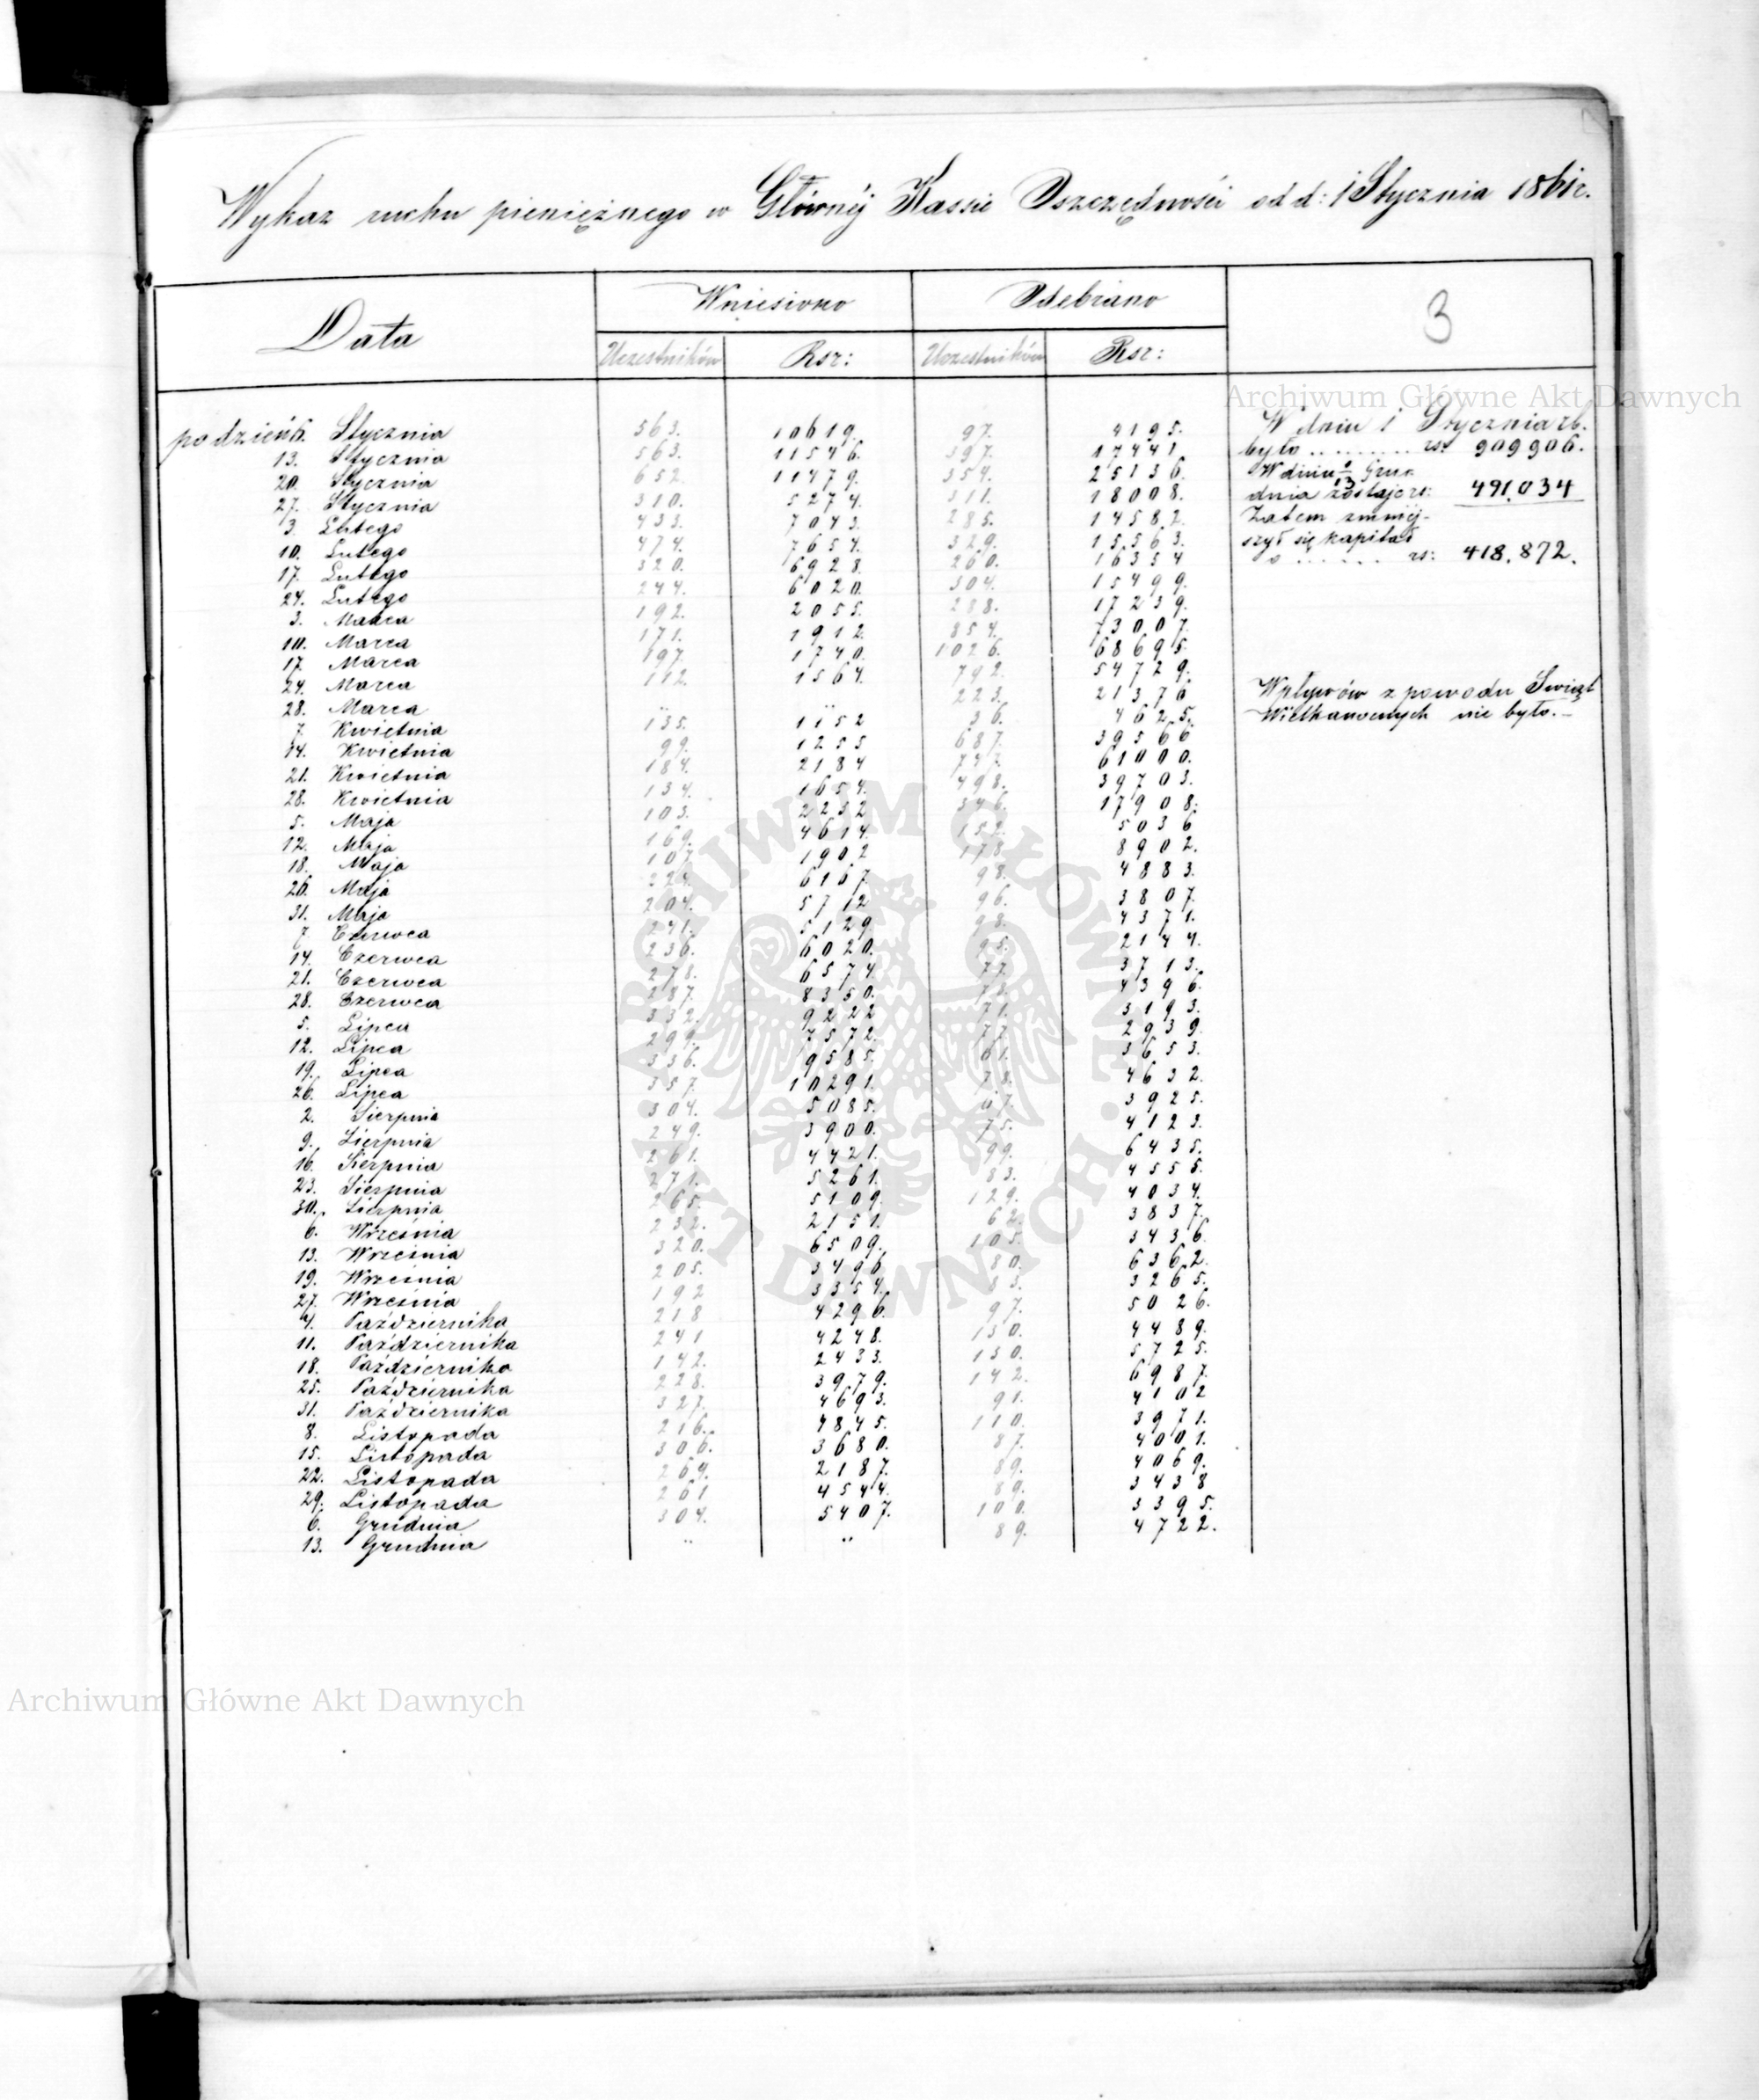 Wykaz ruchu pieniężnego w Głównéj Kassie Oszczędności od d: 1 Stycznia 1861 r.
Data Wniesiono Odebrano 3
Uczestników Rsr: Uczestników Rsr:
po dzień 6. Stycznia 563. 10619. 97. 4195.
13. Stycznia 563. 11546. 397. 17441
20. Stycznia 652. 11479. 354. 25136.
27. Stycznia 310. 5274. 311. 18008.
3. Lutego 433. 7043. 285. 14582.
10. Lutego 474. 7654. 329. 15563.
17. Lutego 320. 6928. 260. 16354
24. Lutego 244. 6020. 304. 15499.
3. Marca 192. 2055. 288. 17239.
10. Marca 171. 1912. 854. 73007.
17. Marca 197. 1740. 1026. 68695.
24. Marca 112. 1564. 792. 54729.
28. Marca .. .. 223. 21376
7. Kwietnia 135. 1152 36. 4625.
14. Kwietnia 99. 1255 687. 39566
21. Kwietnia 184. 2184 747. 61000.
28. Kwietnia 134. 1654. 498. 39703.
5. Maja 103. 2232 346. 17908.
12. Maja 169. 4614. 152. 5036
18. Maja 107. 1902 178. 8902.
26. Maja 6167. 98. 4883.
31. Maja 204. 5712 96. 3807.
7. Czerwca 241. 5129. 98. 4371.
14. Czerwca 236. 6020. 95. 2144.
21. Czerwca 278. 6574. 77. 3713.
28. Czerwca 287. 8350. 78. 4396.
5. Lipca 332. 9222 71. 3193.
12. Lipca 299. 7572. 77. 2939.
19. Lipca 336. 9585. 61. 3653.
26. Lipca 357. 10291. 78. 4632.
2. Sierpnia 304. 5085. 67. 3925.
9. Sierpnia 249. 3900. 75. 4123.
16. Sierpnia 261. 4421. 99. 6435.
23. Sierpnia 271. 5261. 83. 4555.
30. Sierpnia 265. 5109. 129. 4034.
6. Września 232. 2151. 62. 3837.
13. Września 320. 6509. 105. 3436.
19. Września 205. 3496. 80. 6362.
27. Września 192 3354. 83. 3265.
4. Października 218 4296. 97. 5026.
11. Października 241 4248. 130. 4489.
18. Października 142. 2433. 130. 5725.
25. Października 228. 3979. 142. 6987.
31. Października 327. 4693. 91. 4102
8. Listopada 216. 4845. 110. 3971.
15. Listopada 306. 3680. 87. 4001.
22. Listopada 269. 2187. 89. 4069.
29. Listopada 261 4544. 89. 3438
6. Grudnia 304. 5407. 100. 3395.
13. Grudnia .. .. 89. 4722.
W dniu 1 Stycznia rb.
było ........ rs: 909906.
W dniu 1/13 Gru-
dnia zostaje rs: 491.034
Zatem zmniej-
szył się kapitał
o ...... rs: 418.872.
Wpływów z powodu Świąt
Wielkanocnych nie było. –
Archiwum Główne Akt Dawnych
ARCHIWUM GŁÓWNE AKT DAWNYCH
Archiwum Główne Akt Dawnych